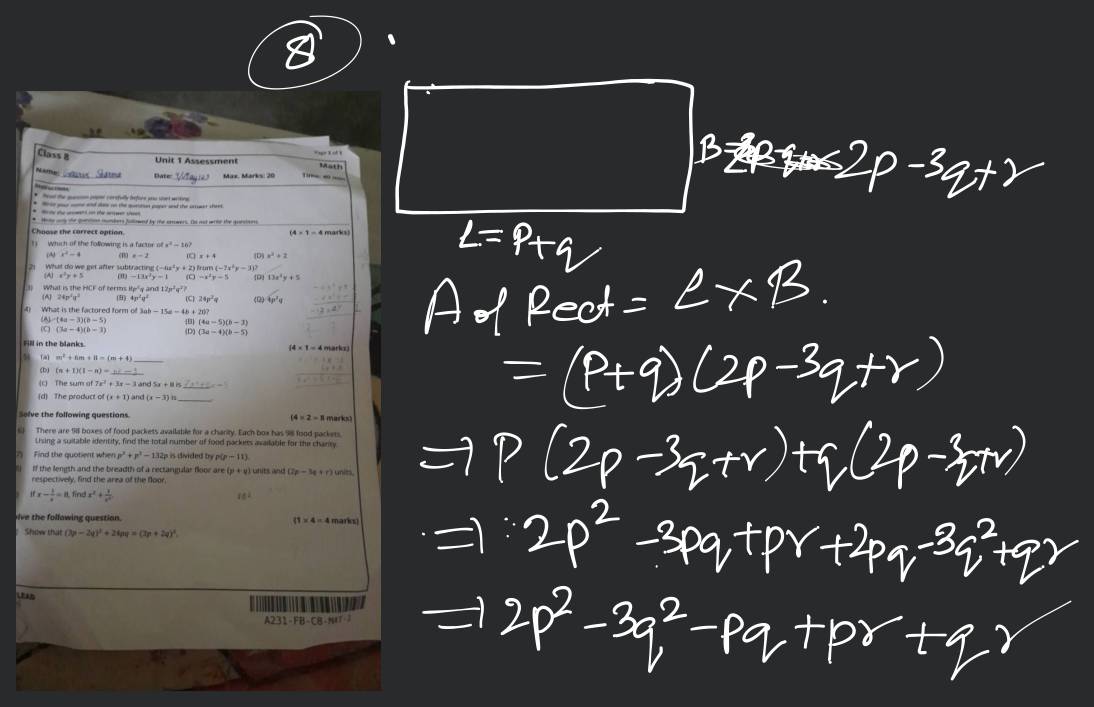 8
B= 2p-3q+r
L=P+q
A of Rect= L×B.
= (P+q)(2p-3q+r)
⇒ P(2p-3q+r)+q(2p-3q+r)
⇒ 2p²-3pq+pr+2pq-3q²+qr
⇒ 2p²-3q²-pq+pr+qr
Page 1 of 1
Class 8 Unit 1 Assessment Math
Name: Sharma Date: Max. Marks: 20
Instructions:
• Read the question paper carefully before you start writing.
• Write your name and date on the question paper and the answer sheet.
• Write the answers on the answer sheet.
• Write only the question numbers followed by the answers. Do not write the questions.
Choose the correct option. (4 × 1 = 4 marks)
1) Which of the following is a factor of x² − 16?
(A) x² − 4 (B) x − 2 (C) x + 4 (D) x² + 2
2) What do we get after subtracting (−6x²y + 2) from (−7x²y − 3)?
(A) x²y + 5 (B) −13x²y − 1 (C) −x²y − 5 (D) 13x²y + 5
3) What is the HCF of terms 8p²q and 12p²q²?
(A) 24p²q² (B) 4p²q² (C) 24p²q (D) 4p²q
4) What is the factored form of 3ab − 15a − 4b + 20?
(A) (4a − 3)(b − 5) (B) (4a − 5)(b − 3)
(C) (3a − 4)(b − 3) (D) (3a − 4)(b − 5)
Fill in the blanks. (4 × 1 = 4 marks)
(a) m² + 6m + 8 = (m + 4)
(b) (n + 1)(1 − n) =
(c) The sum of 7x² + 3x − 3 and 5x + 8 is
(d) The product of (x + 1) and (x − 3) is
Solve the following questions. (4 × 2 = 8 marks)
6) There are 98 boxes of food packets available for a charity. Each box has 98 food packets.
Using a suitable identity, find the total number of food packets available for the charity.
7) Find the quotient when p³ + p² − 132p is divided by p(p − 11).
If the length and the breadth of a rectangular floor are (p + q) units and (2p − 3q + r) units,
respectively, find the area of the floor.
If x − 1/x = 8, find x² + 1/x².
lve the following question. (1 × 4 = 4 marks)
Show that (3p − 2q)² + 24pq = (3p + 2q)².
LEAD
A231-FB-CB-MAT-1